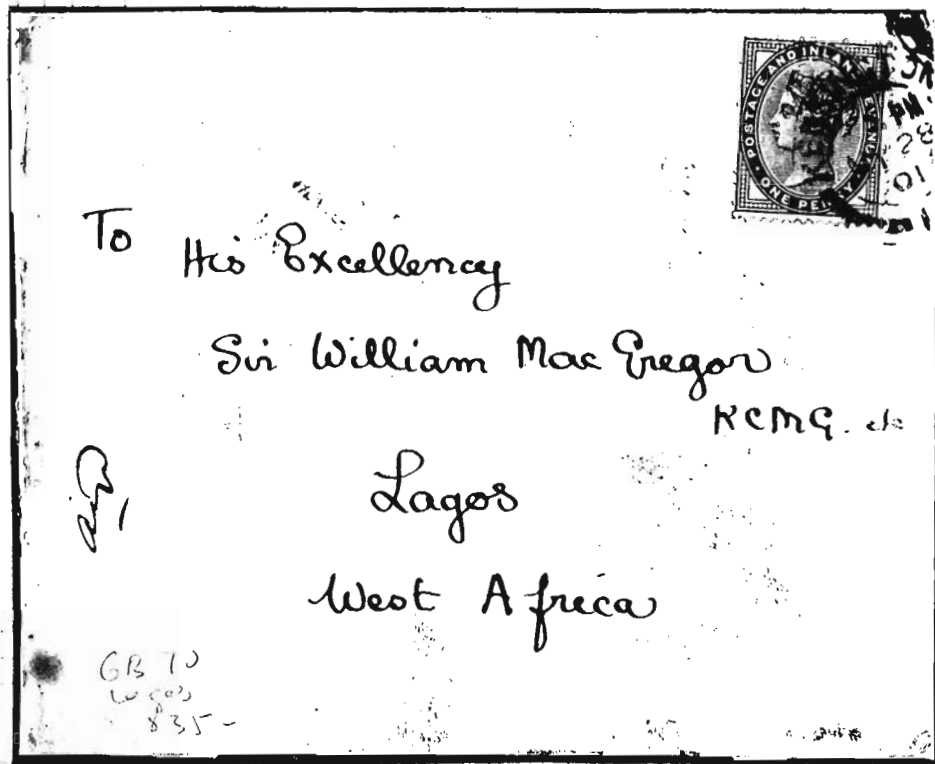 POSTAGE AND INLAND REVENUE
ONE PENNY
PM
28
01
To
His Excellency
Sir William Mac Gregor
KCMG. etc
Lagos
West Africa
GB TO
Lagos
835-